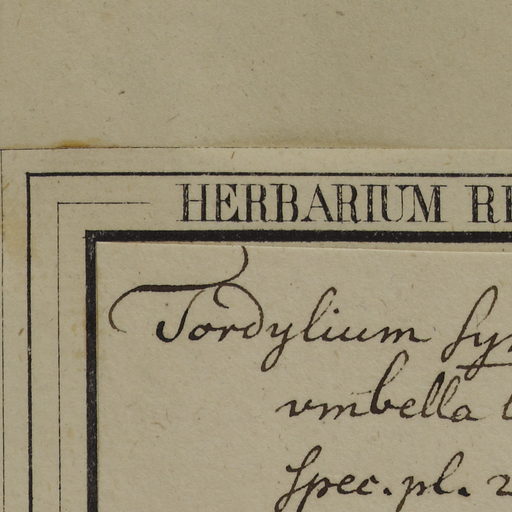 HERBARIUM RE
Tordylium syr
vmbella
spec. pl. 2